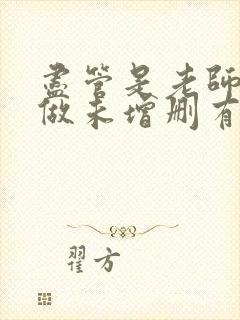 盡管是老師
做未增刪有
翟方